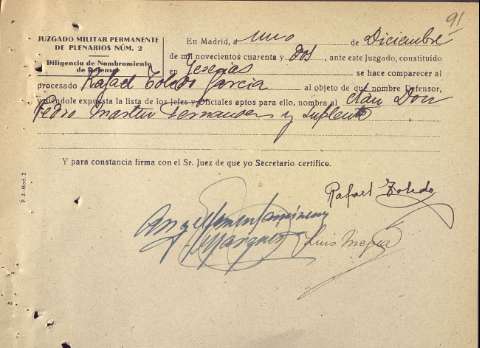 91
JUZGADO MILITAR PERMANENTE
DE PLENARIOS NÚM. 2
Diligencia de Nombramiento
de Defensor
En Madrid, a uno de Diciembre
de mil novecientos cuarenta y dos, ante este juzgado, constituído
en Yeserías se hace comparecer al
procesado Rafael Toledo García al objeto de que nombre Defensor,
y siéndole expuesta la lista de los Jefes y Oficiales aptos para ello, nombra al Don
Pedro Martin Fernandez y suplente
Y para constancia firma con el Sr. Juez de que yo Secretario certifico.
Rafael Toledo
Luis